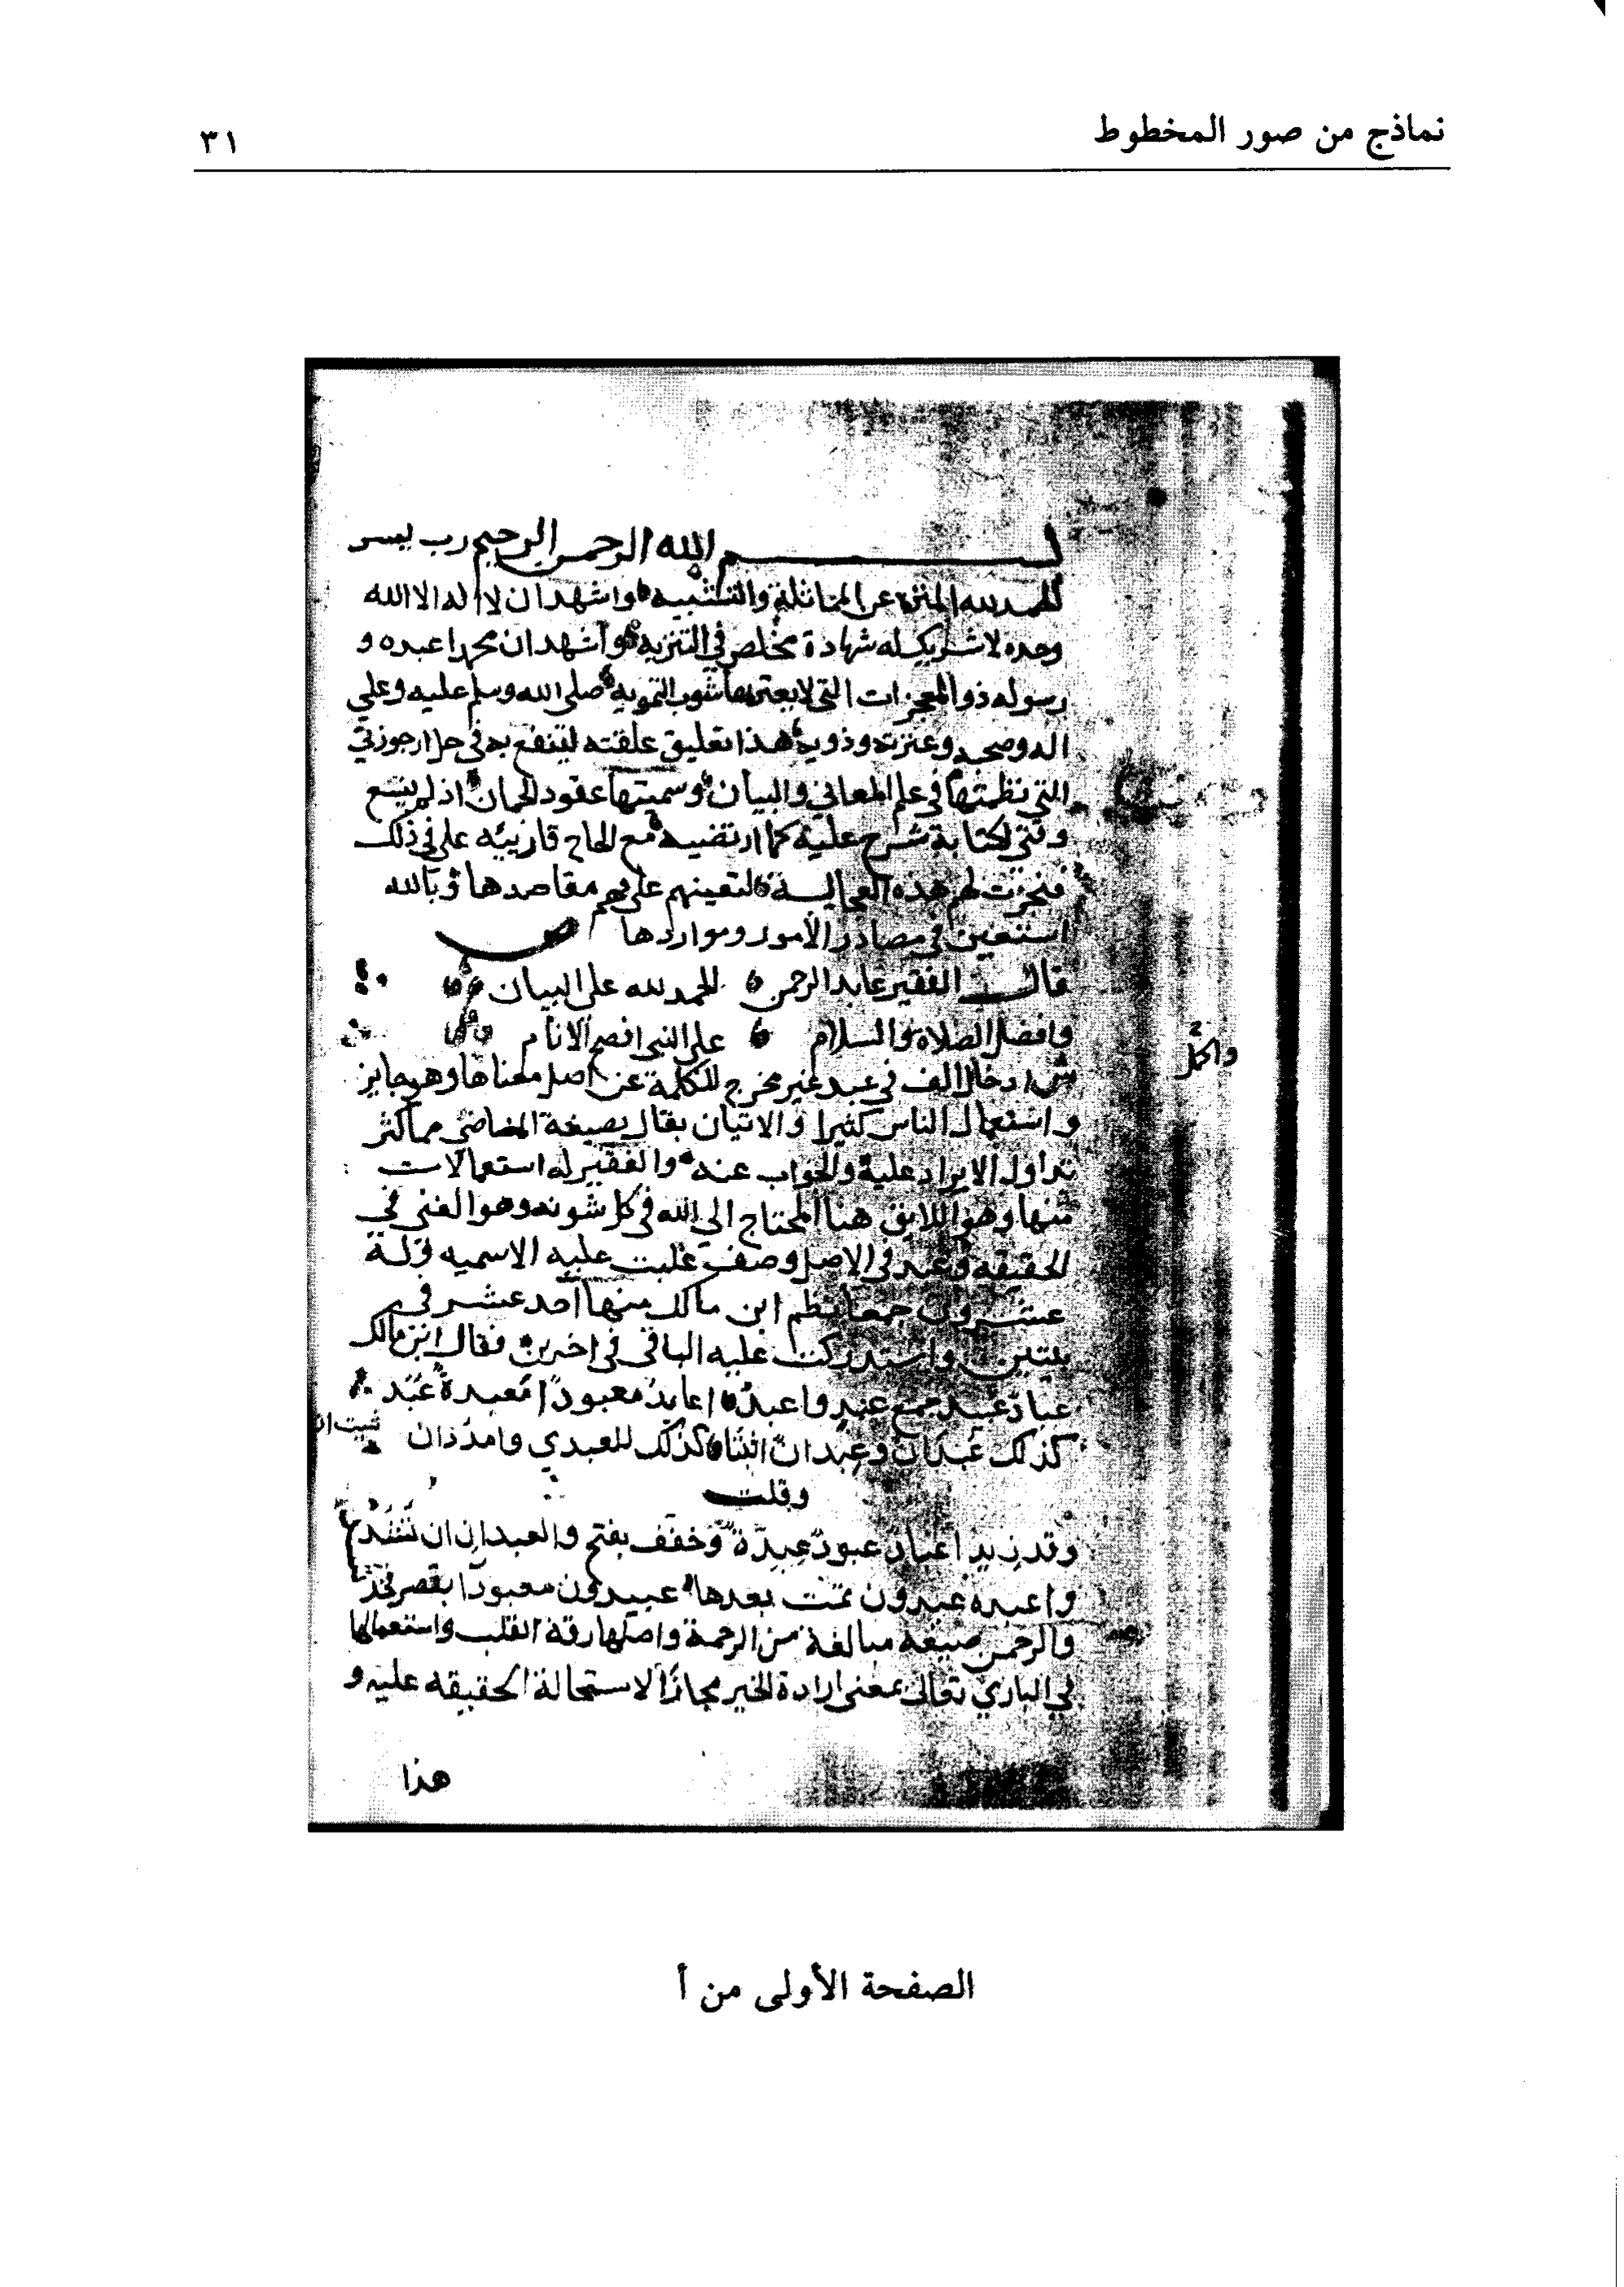 نماذج من صور المخطوط
٣١
بسم الله الرحمن الرحيم رب يسر
الحمد لله المنزه عن المماثلة والتشبيه واشهد ان لا اله الا الله
وحده لا شريك له شهادة مخلص في التنزيه واشهد ان محمدا عبده و
رسوله ذو المعجزات التي لا يعتريها شوب التمويه صلى الله وسلم عليه وعلى
اله وصحبه وعترته وذويه هذا تعليق علقته لينتفع به في حل ارجوزتي
التي نظمتها في علم المعاني والبيان وسميتها عقود الجمان اذ لم يتسع
وقتي لكتابة شرح عليه كما ارتضيه مع الحاح قارئيه علي في ذلك
فنجزت لهم هذه العجالة لتعينهم على فهم مقاصدها وبالله
استعين في مصادر الأمور ومواردها ص
قال الفقير عابد الرحمن الحمد لله على البيان
وافضل الصلاة والسلام على النبي افصح الانام
واكمل
ش ادخال الف في عبد غير مخرج للكلمة عن اصل معناها وهو جايز
واستعمال الناس كثيرا والاتيان بقال بصيغة الماضي مما كثر
تداول الايراد عليه والجواب عنه والفقير له استعمالات
منها وهو اللايق هنا المحتاج الى الله في كل شونه وهو الغني في
الحقيقه وعبد في الاصل وصف غلبت عليه الاسميه وله
عشرون جمعا نظم ابن مالك منها احد عشر في
بيتين واستدركت عليه الباقي في اخرين فقال ابن مالك
عباد عبيد جمع عبد واعبد اعابد معبودا معبدة عبد
كذلك عبدان وعبدان اثبتا كذلك العبدي وامدد ان
وقلت
وقد زيد اعباد عبود عبدة وخفف بفتح والعبدان ان تشد
واعبده عبدون تمت بعدها عبيدون معبودا بقصر فخذ
والرحمن صيغة مبالغة من الرحمة واصلها رقة القلب واستعمالها
في الباري تعالى بمعنى ارادة الخير مجازا لاستحالة الحقيقه عليه و
هذا
الصفحة الأولى من أ